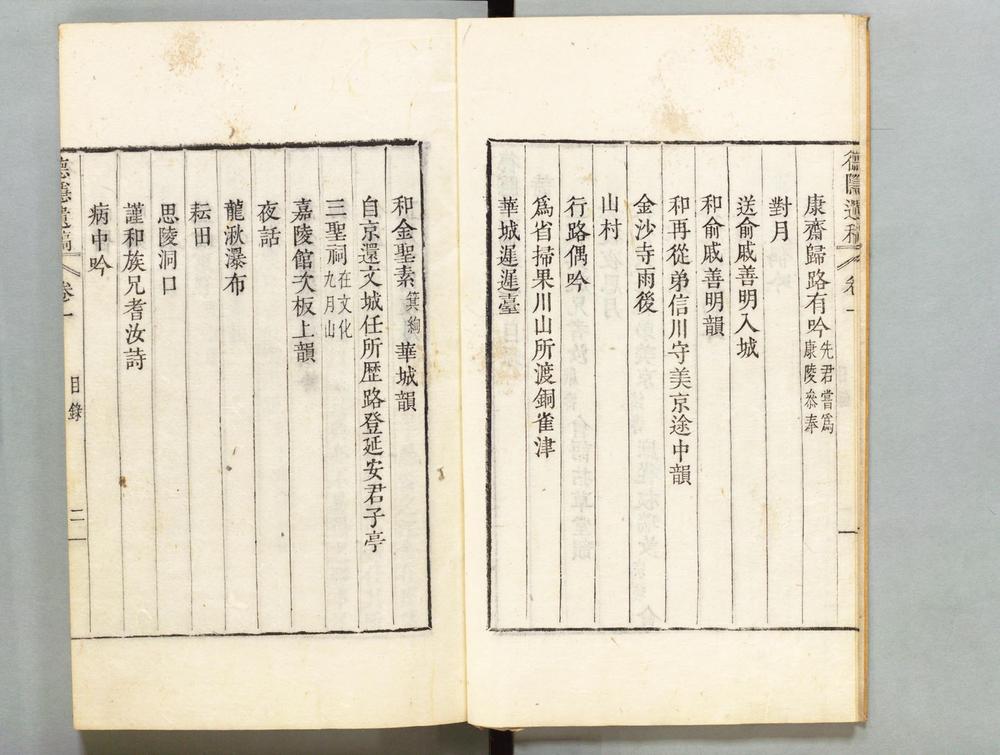 德隱遺稿 卷一
康齋歸路有吟 先君嘗爲康陵叅奉
對月
送俞戚善明入城
和俞戚善明韻
和再從弟信川守美京途中韻
金沙寺雨後
山村
行路偶吟
爲省掃果川山所渡銅雀津
華城遲遲臺
和金聖素 箕絢 華城韻
自京還文城任所歷路登延安君子亭
三聖祠 在文化九月山
嘉陵館次板上韻
夜話
龍湫瀑布
耘田
思陵洞口
謹和族兄耆汝詩
病中吟
德隱遺稿 卷一 目錄 二